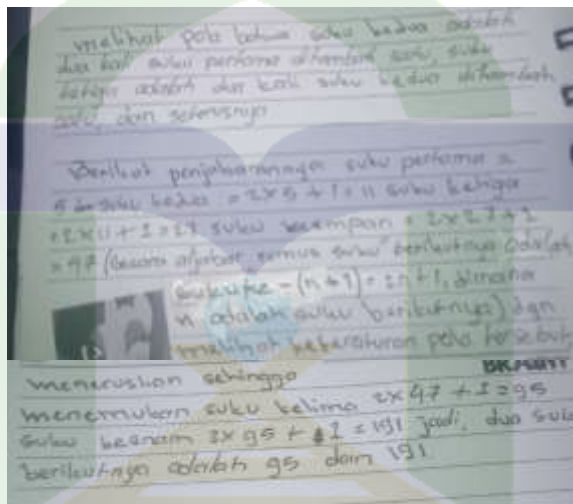 melihat pola bahwa suku kedua adalah
dua kali suku pertama ditambah satu, suku
ketiga adalah dua kali suku kedua ditambah
satu, dan seterusnya
Berikut penjabarannya suku pertama =
5 suku kedua = 2x5 + 1 = 11 suku ketiga
= 2x11 + 1 = 23 suku keempat = 2x23+1
= 47 (secara aljabar rumus suku berikutnya adalah
suku ke - (n+1) = 2n+1, dimana
n adalah suku berikutnya) dgn
melihat keteraturan pola tersebut
meneruskan sehingga
menemukan suku kelima 2x47 + 1 = 95
suku keenam 2x95 + 1 = 191 jadi, dua suku
berikutnya adalah 95 dan 191